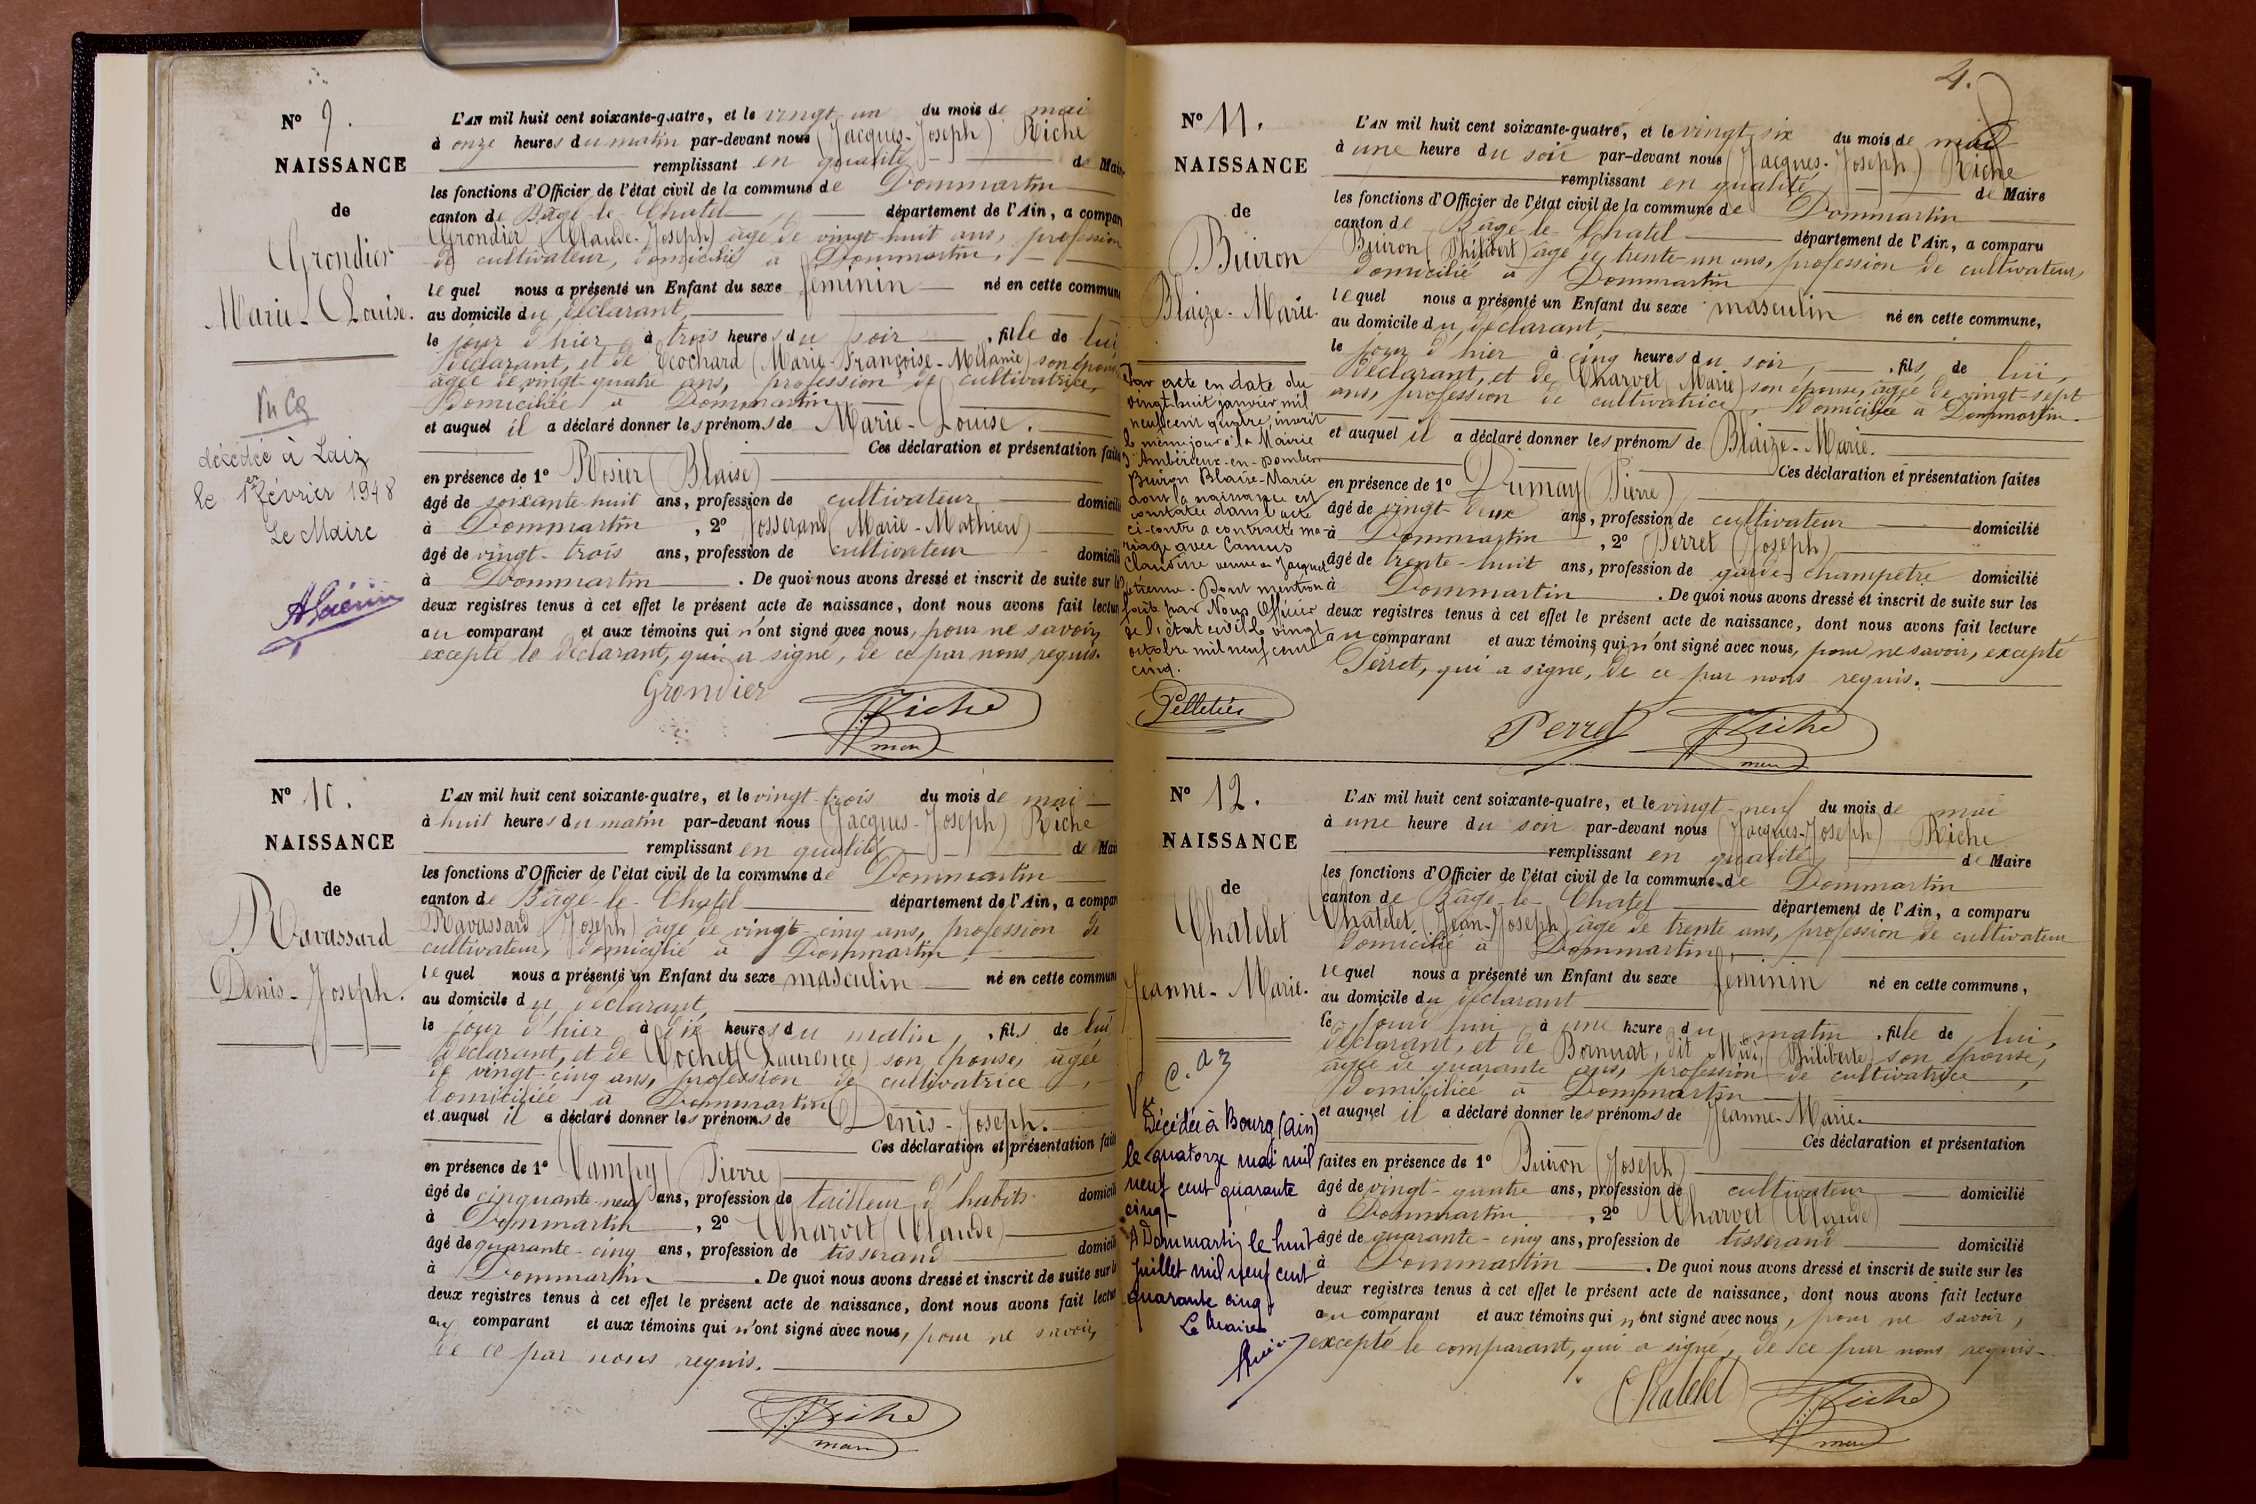 Nº 9.
NAISSANCE
de
Grondier
Marie-Louise.
décédée à Laiz
le 1er février 1948
Le Maire
L'AN mil huit cent soixante-quatre, et le vingt un du mois de mai
à onze heures du matin par-devant nous (Jacques-Joseph) Riche
remplissant en qualité de Maire
les fonctions d'Officier de l'état civil de la commune de Dommartin
canton de Bâgé-le-Chatel département de l'Ain, a compar
Grondier (Claude-Joseph) âgé de vingt-huit ans, profession
de cultivateur, domicilié à Dommartin,
lequel nous a présenté un Enfant du sexe féminin né en cette commune
au domicile du déclarant,
le jour d'hier à trois heures du soir, fille de lui
déclarant, et de Ecochard (Marie-Françoise-Mélanie) son épouse
âgée de vingt-quatre ans, profession de cultivatrice,
domiciliée à Dommartin
et auquel il a déclaré donner les prénoms de Marie-Louise.
Ces déclaration et présentation faite
en présence de 1º Rosier (Blaise)
âgé de soixante-huit ans, profession de cultivateur domicili
à Dommartin, 2º Josserand (Marie-Mathieu)
âgé de vingt-trois ans, profession de cultivateur domicili
à Dommartin. De quoi nous avons dressé et inscrit de suite sur le
deux registres tenus à cet effet le présent acte de naissance, dont nous avons fait lectur
au comparant et aux témoins qui n'ont signé avec nous, pour ne savoir,
excepté le déclarant, qui a signé, de ce par nous requis.
Grondier Riche
maire
Nº 10.
NAISSANCE
de
Ravassard
Denis-Joseph.
L'AN mil huit cent soixante-quatre, et le vingt-trois du mois de mai
à huit heures du matin par-devant nous (Jacques-Joseph) Riche
remplissant en qualité de Mai
les fonctions d'Officier de l'état civil de la commune de Dommartin
canton de Bâgé-le-Chatel département de l'Ain, a compar
Ravassard (Joseph) âgé de vingt-cinq ans, profession de
cultivateur, domicilié à Dommartin,
lequel nous a présenté un Enfant du sexe masculin né en cette commune
au domicile du déclarant,
le jour d'hier à dix heures du matin, fils de lui
déclarant, et de Cochet (Laurence) son épouse, âgée
de vingt-cinq ans, profession de cultivatrice,
domiciliée à Dommartin
et auquel il a déclaré donner les prénoms de Denis-Joseph.
Ces déclaration et présentation faite
en présence de 1º Vampy (Pierre)
âgé de cinquante-neuf ans, profession de tailleur d'habits domicili
à Dommartin, 2º Charvet (Claude)
âgé de quarante-cinq ans, profession de tisserand domicili
à Dommartin. De quoi nous avons dressé et inscrit de suite sur le
deux registres tenus à cet effet le présent acte de naissance, dont nous avons fait lectur
au comparant et aux témoins qui n'ont signé avec nous, pour ne savoir,
de ce par nous requis.
Riche
maire
4.
Nº 11.
NAISSANCE
de
Buiron
Blaize-Marie.
Par acte en date du
vingt-huit janvier mil
neuf cent quatre, inscrit
le même jour à la Mairie
d'Ambérieux-en-Dombes
Buiron Blaize-Marie
dont la naissance est
constatée dans l'acte
ci-contre a contracté ma-
riage avec Camus
Claudine veuve de Jacquet
Etienne - Dont mention
faite par Nous Officier
de l'état civil le vingt
octobre mil neuf cent
cinq.
Pelletier
L'AN mil huit cent soixante-quatre, et le vingt-six du mois de mai
à une heure du soir par-devant nous (Jacques-Joseph) Riche
remplissant en qualité de Maire
les fonctions d'Officier de l'état civil de la commune de Dommartin
canton de Bâgé-le-Chatel département de l'Ain, a comparu
Buiron (Philibert) âgé de trente-un ans, profession de cultivateur,
domicilié à Dommartin
lequel nous a présenté un Enfant du sexe masculin né en cette commune,
au domicile du déclarant,
le jour d'hier à cinq heures du soir, fils de lui,
déclarant, et de Charvet (Marie) son épouse, âgée de vingt-sept
ans, profession de cultivatrice, domiciliée à Dommartin.
et auquel il a déclaré donner les prénoms de Blaize-Marie.
Ces déclaration et présentation faites
en présence de 1º Dumay (Pierre)
âgé de vingt-deux ans, profession de cultivateur domicilié
à Dommartin, 2º Perret (Joseph)
âgé de trente-huit ans, profession de garde-champêtre domicilié
à Dommartin. De quoi nous avons dressé et inscrit de suite sur les
deux registres tenus à cet effet le présent acte de naissance, dont nous avons fait lecture
au comparant et aux témoins qui n'ont signé avec nous, pour ne savoir, excepté
Perret, qui a signé, de ce par nous requis.
Perret Riche
maire
Nº 12.
NAISSANCE
de
Chatelet
Jeanne-Marie.
Décédée à Bourg (Ain)
le quatorze mai mil
neuf cent quarante
cinq
A Dommartin, le huit
juillet mil neuf cent
quarante cinq
Le Maire
L'AN mil huit cent soixante-quatre, et le vingt-neuf du mois de mai
à une heure du soir par-devant nous (Jacques-Joseph) Riche
remplissant en qualité de Maire
les fonctions d'Officier de l'état civil de la commune de Dommartin
canton de Bâgé-le-Chatel département de l'Ain, a comparu
Chatelet (Jean-Joseph) âgé de trente ans, profession de cultivateur
domicilié à Dommartin,
lequel nous a présenté un Enfant du sexe féminin né en cette commune,
au domicile du déclarant
le à une heure du matin, fille de lui,
déclarant, et de Bonnat, dit Midi, (Philiberte) son épouse,
âgée de quarante ans, profession de cultivatrice,
domiciliée à Dommartin
et auquel il a déclaré donner les prénoms de Jeanne-Marie.
Ces déclaration et présentation
faites en présence de 1º Buiron (Joseph)
âgé de vingt-quatre ans, profession de cultivateur domicilié
à Dommartin, 2º Charvet (Claude)
âgé de quarante-cinq ans, profession de tisserand domicilié
à Dommartin. De quoi nous avons dressé et inscrit de suite sur les
deux registres tenus à cet effet le présent acte de naissance, dont nous avons fait lecture
au comparant et aux témoins qui n'ont signé avec nous, pour ne savoir,
excepté le comparant, qui a signé, de ce par nous requis.
Chatelet Riche
maire